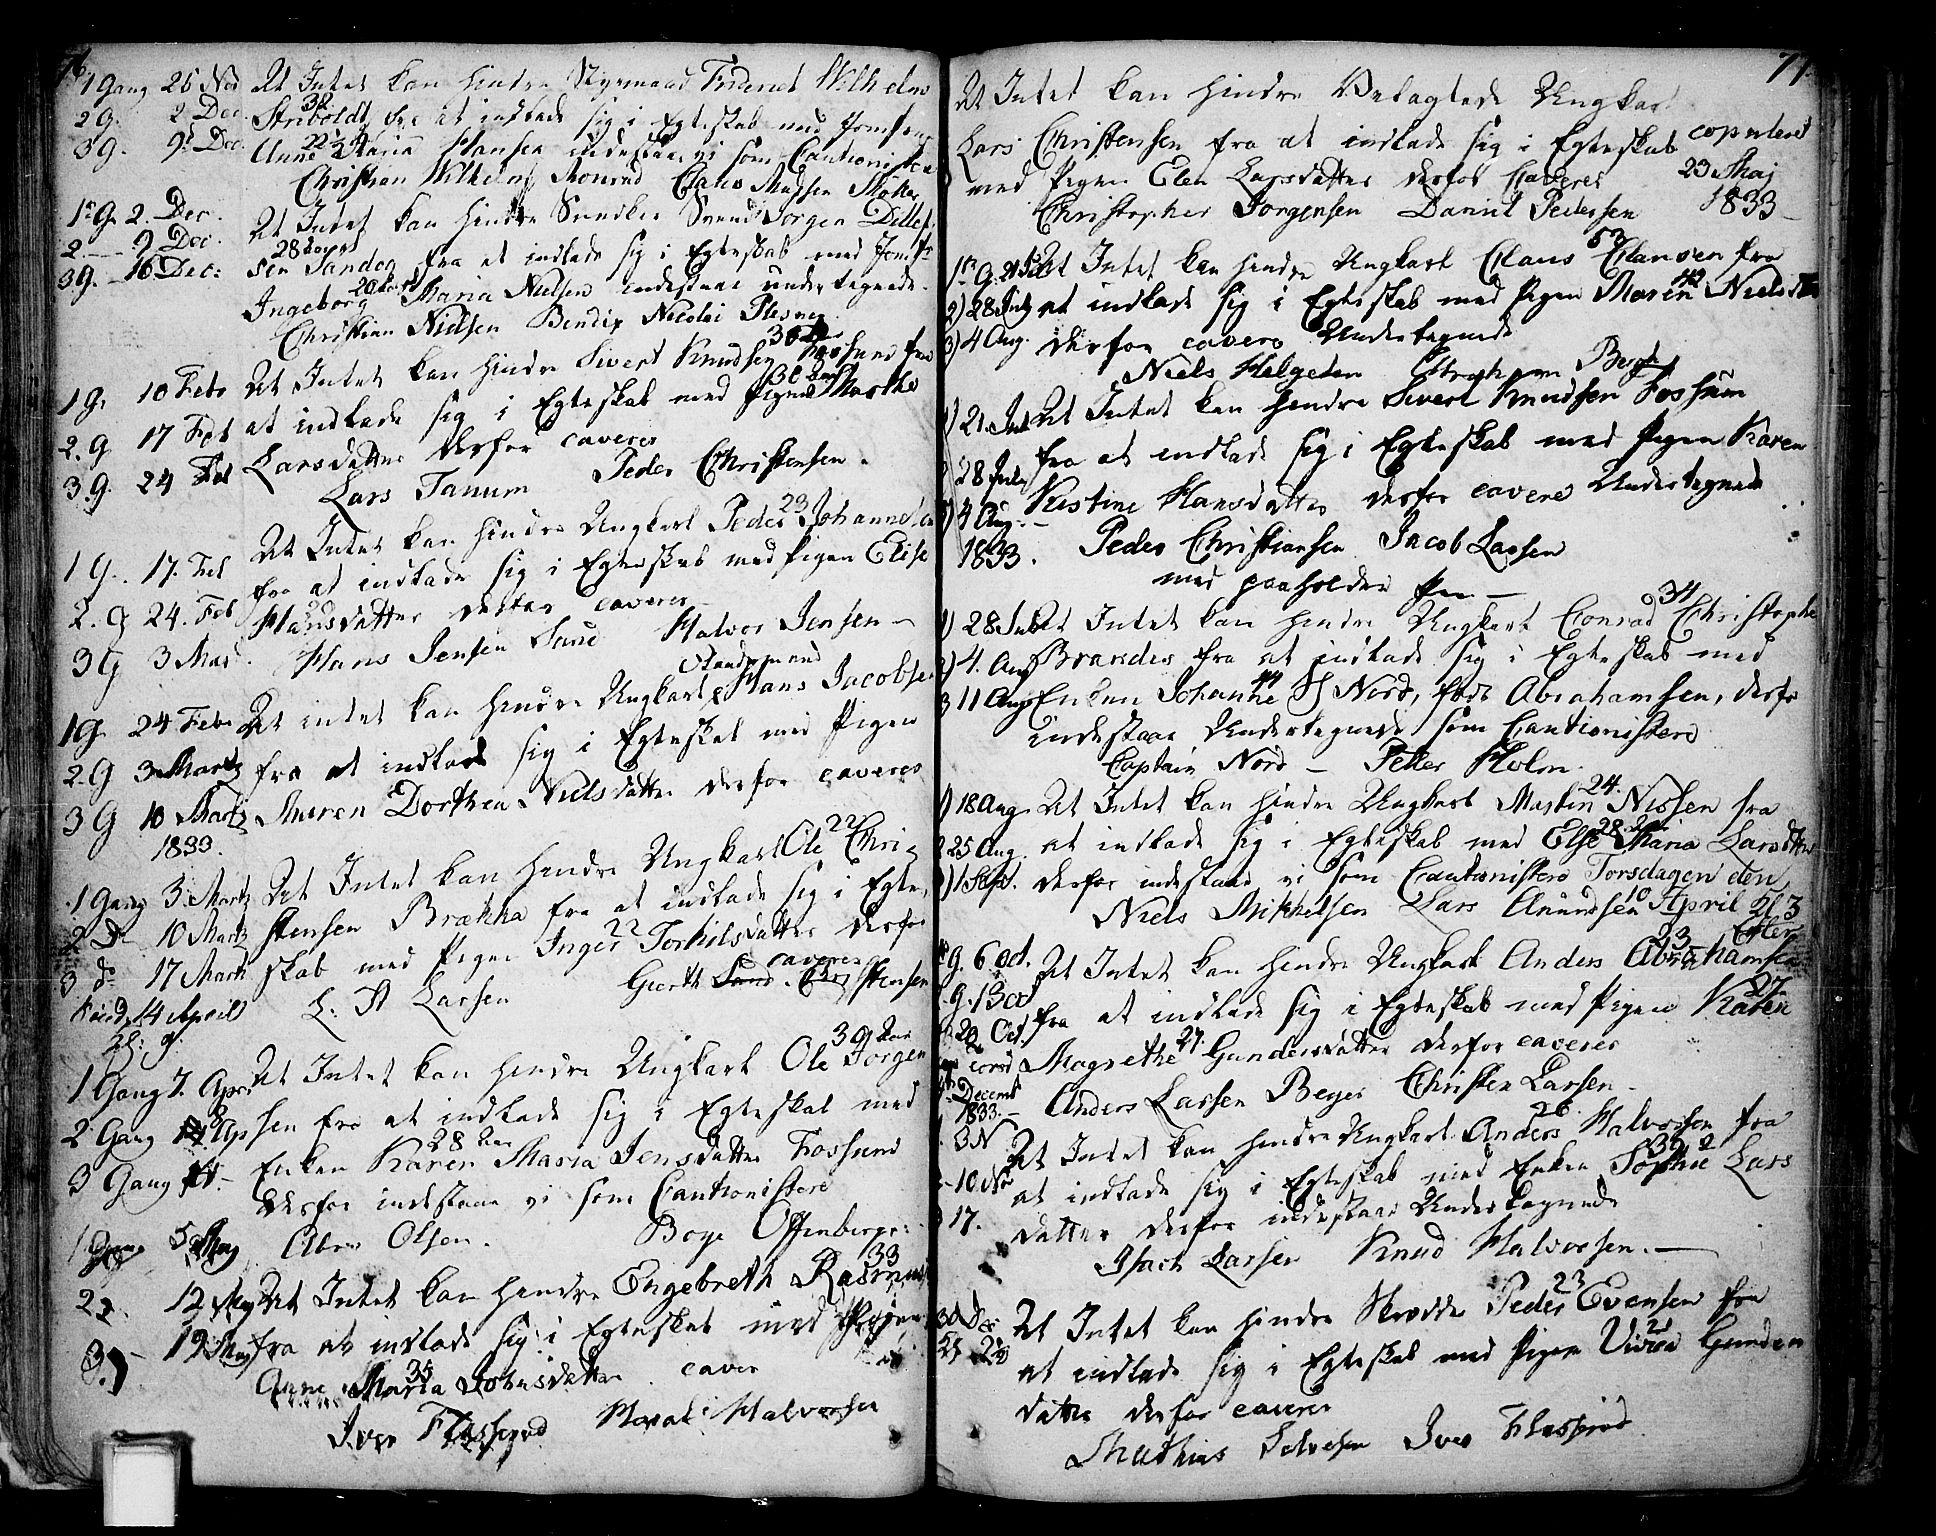 76
1 Gang 25 Nov At Intet kan hindre Styrmand Friderich Wilhelm
2 G. 2 Dec. Striboldt 32 fra at indlade sig i Egteskab med Jomfrue
3 G. 9 Dec. Anne Maria 22 Hansen indestaae vi som Cautionister
Christian Wilhelm Monrad Claus Madsen
1e G. 2. Dec. At Intet kan hindre Svend Jørgen
2 — 9 Dec. sen Sander 28 Aar fra at indlade sig i Egteskab med Jomfr
3 G. — 16 Dec: Ingeborg Maria Nielsen indestaae undertegnede
Christian Nielsen Bendix Nicolai Plesner
1 G. 10 Febr At Intet kan hindre Sivert Knudsen 36 Aar Fossund fra
2. G. 17 Feb at indlade sig i Egteskab med Pigen 30 Aar Marthe
3. G. 24 Feb Larsdatter derfor caveres
Lars Tanum Peder Christensen.
1 G. 17. Feb At Intet kan hindre Ungkarl Peder 23 Johannesen
2. G 24. Feb fra at indlade sig i Egteskab med Pigen Elise
3 G 3 Mar Hansdatter derfor caveres
Hans Jensen Halvor Jensen —
1 G. 24 Febr At intet kan hindre Ungkarl Hans Jacobsen
2. G 3 Martz fra at indlade sig i Egteskab med Pigen
3 G 10 Martz Maren Dorthea Nielsdatter derfor caveres
1833.
1 Gang 3 Martz At Intet kan hindre Ungkarl Ole 22 Chri-
2 Do 10 Martz stensen Brækka fra at indlade sig i Egte-
3 do 17 Marts skab med Pigen Inger 22 Torkildsdatter derfor
14 April caveres
L. A Larsen Gierth Christensen
1 Gang 7. Apr At Intet kan hindre Ungkarl Ole 39 Aar Jørgen
2 Gang 14 Ap sen fra at indlade sig i Egteskab med
3 Gang Enken Karen 28 Aar Maria Jensdatter Fossund
derfor indestaae vi som Cautionister
Abra Olsen. Boye Offenberger
1 Gang 5 May
2 12 May At Intet kan hindre Engebreth Rasmus 33
3. — 19 May fra at indlade sig i Egteskab med Pigen
Anne Maria 35 Johnsdatter caver
Iver Flassrød Halvorsen
77
At Intet kan hindre Velagtede Ungkar
Lars Christensen fra at indlade sig i Egteskab copuleret
med Pigen Elen Larsdatter derfor Caveres 23 Maj
Christopher Jørgensen Daniel Pedersen 1833 —
1te G. 21 Jul At Intet kan hindre Ungkarl Claus 53 Clausen fra
2) 28 July at indlade sig i Egteskab med Pigen Maren 42 Nielsd
3) 4 Aug. derfor cavere Undertegnede
Niels Helgesen Abraham Berg
1) 21. Jul At Intet kan hindre Sivert Knudsen Fossum
2 28 July fra at indlade sig i Egteskab med Pigen Karen
3) 4 Aug. Kistine Hansdatter derfor cavere Undertegnede
1833. Peder Christiansen Jacob Larsen
med paaholden Pen —
1) 28 Jul At Intet kan hindre Ungkarl Conrad 34 Christopher
2) 4. Aug Brandes fra at indlade sig i Egteskab med
3 11 Aug Enken Johanne 44 Nord, født Abrahamsen, derfor
indestaae Undertegnede som Cautionistere
Captain Nord — Peter Holm.
1) 18 Aug At Intet kan hindre Ungkarl Martin 24. Nissen fra
2 25 Aug. at indlade sig i Egteskab med Else 28 Maria Larsdatter
3) 1 Sept. derfor indestaae vi som Cautionistere Torsdagen den
Niels Mikkelsen Lars Amundsen 10 April Kl 3
Efter
G. 6 oct. At Intet kan hindre Ungkarl Anders 23 Abrahamsen
G. 13 oct fra at indlade sig i Egteskab med Pigen Karen 27.
20 Oct. Magrethe 27 Gundersdatter derfor caveres
Decemb Anders Larsen Beyer Christen Larsen —
1833. —
3 N At Intet kan hindre Ungkarl Anders 26 Halvorsen fra
— 10. Nov at indlade sig i Egteskab med Enken Sophie 39 Lars
17. datter derfor indestaae Undertegnede
Isach Larsen Knud Halvorsen. —
At Intet kan hindre Skrædder Peder 23 Evensen fra
at indlade sig i Egteskab med Pigen Vivea 21 Gunders
datter derfor caveres
Mathias Iver Flassrød